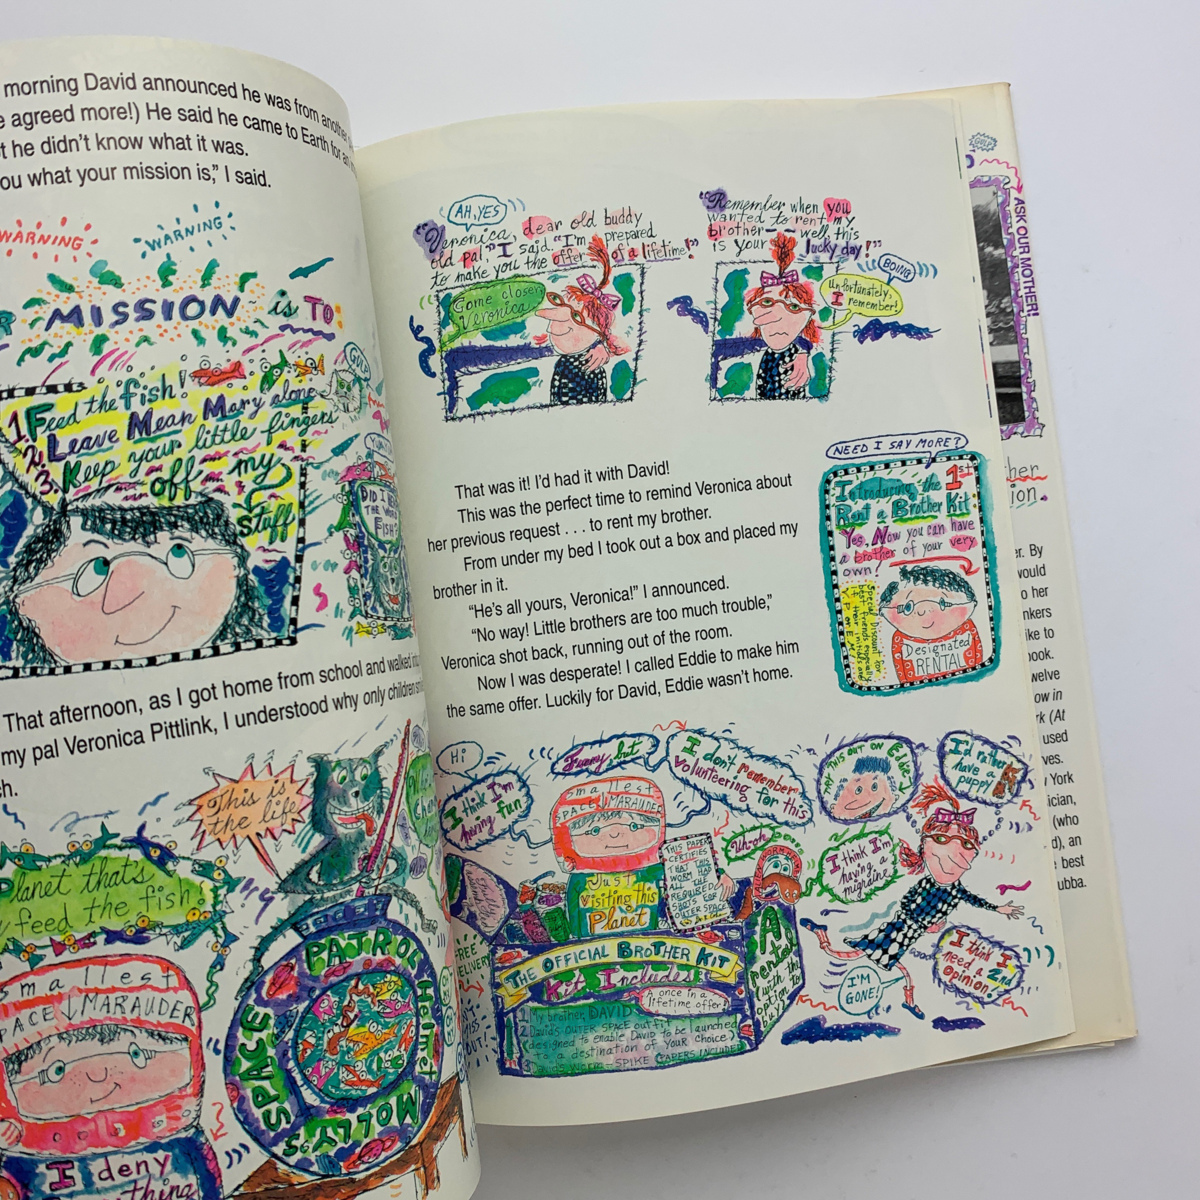 morning David announced he was from another
agreed more!) He said he came to Earth for an
he didn't know what it was.
ou what your mission is," I said.
WARNING
WARNING
MISSION is TO:
1. Feed the fish!
2. Leave Mean Mary alone
3. Keep your little fingers
off my
stuff
GULP
That afternoon, as I got home from school and walked
my pal Veronica Pittlink, I understood why only children
This is
the life
Planet that's
feed the fish!
smallest
SPACE MARAUDER
I deny
SPACE PATROL Helmet
MOLLY'S
AH, YES
"Veronica, dear old buddy
old pal," I said. "I'm prepared
to make you the offer of a lifetime!"
Come closer,
Veronica
"Remember when you
wanted to rent my
brother — well, this
is your lucky day!"
BOING
Unfortunately,
I
remember!
That was it! I'd had it with David!
This was the perfect time to remind Veronica about
her previous request . . . to rent my brother.
From under my bed I took out a box and placed my
brother in it.
"He's all yours, Veronica!" I announced.
"No way! Little brothers are too much trouble,"
Veronica shot back, running out of the room.
Now I was desperate! I called Eddie to make him
the same offer. Luckily for David, Eddie wasn't home.
NEED I SAY MORE?
Introducing the 1st
Rent a Brother Kit
Yes, Now you can have
a brother of your very
own!
Special Discount for
best friends especially
if their initials are
V.P. or E.M.
Designated
RENTAL
Hi
Funny, but
I don't remember
volunteering for this
I think I'm
having fun
smallest
SPACE MARAUDER
Just
visiting this
Planet
THIS PAPER
CERTIFIES
THAT THIS
WORM HAS
ALL THE
REQUIRED
SHOTS FOR
OUTER SPACE
Uh-oh
TRY THIS OUT ON Eddie
I'd rather
have a
puppy
I think I'm
having a
migraine
I think I
need a 2nd
opinion!
I'M
GONE!
FREE
DELIVERY
THE OFFICIAL BROTHER KIT
Kit Includes
A once in a
lifetime offer!
1. My brother, DAVID
2. David's OUTER SPACE outfit
(designed to enable DAVID to be launched
to a destination of YOUR choice)
3. David's worm — SPIKE (PAPERS INCLUDED)
A
rental
with the
option to
buy
GULP
ASK OUR MOTHER!
her
ion.
r. By
would
o her
nkers
ike to
ook.
welve
ow in
rk (At
used
ves.
York
ician,
(who
d), an
best
ubba.